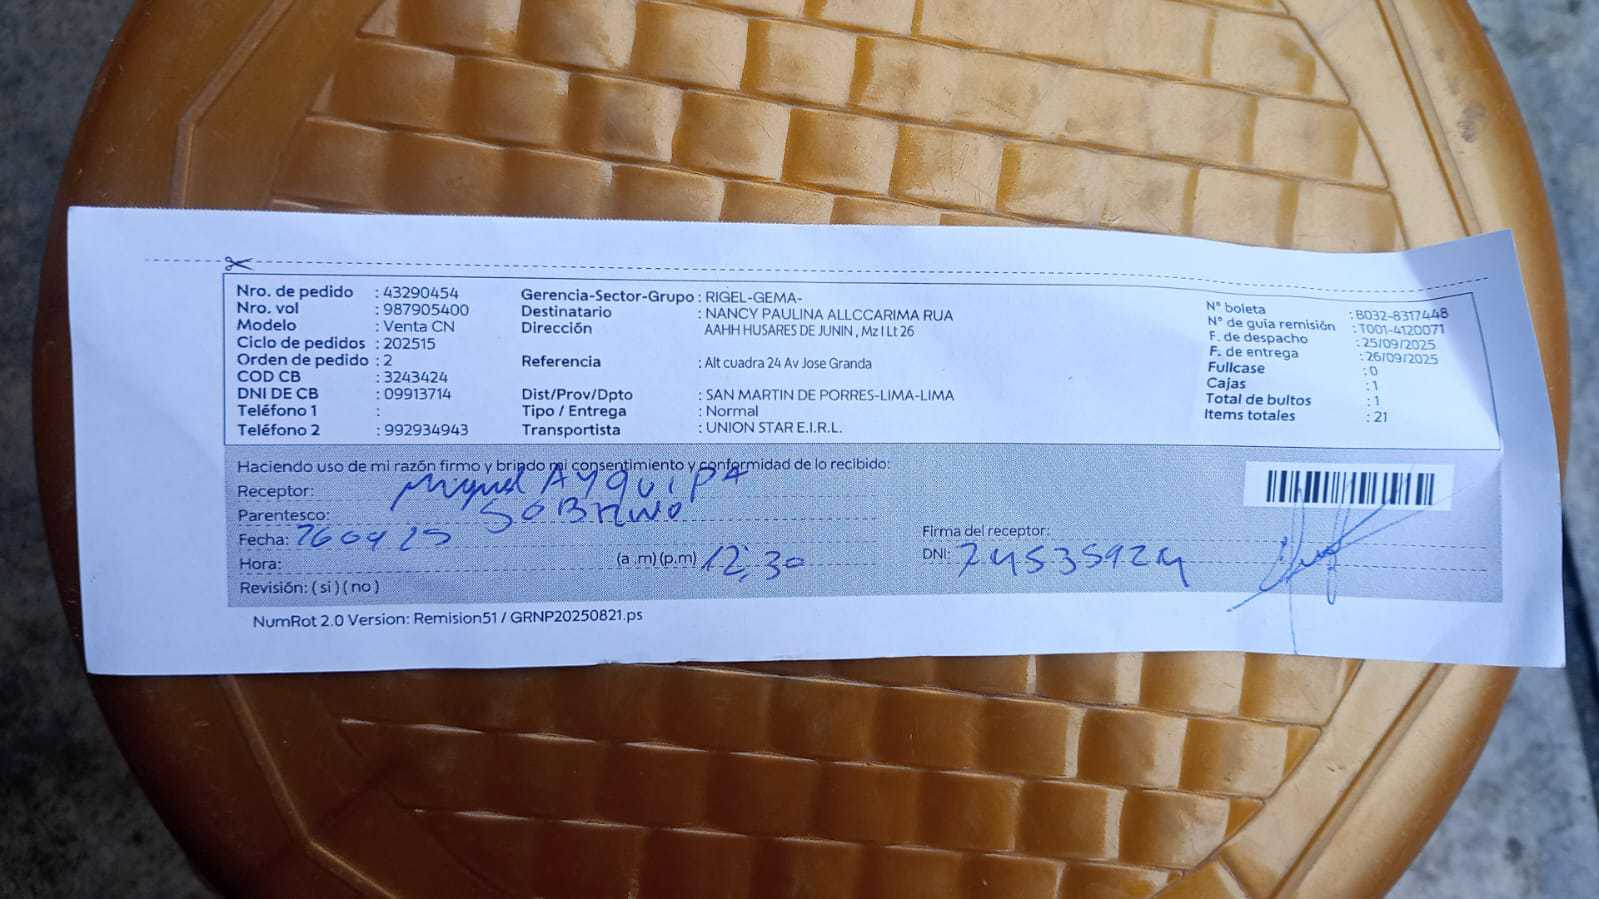 Nro. de pedido : 43290454
Nro. vol : 987905400
Modelo : Venta CN
Ciclo de pedidos : 202515
Orden de pedido : 2
COD CB : 3243424
DNI DE CB : 09913714
Teléfono 1 :
Teléfono 2 : 992934943
Gerencia-Sector-Grupo : RIGEL-GEMA-
Destinatario : NANCY PAULINA ALLCCARIMA RUA
Dirección AAHH HUSARES DE JUNIN , Mz I Lt 26
Referencia : Alt cuadra 24 Av Jose Granda
Dist/Prov/Dpto : SAN MARTIN DE PORRES-LIMA-LIMA
Tipo / Entrega : Normal
Transportista : UNION STAR E.I.R.L.
N° boleta : B032-8317448
N° de guía remisión : T001-4120071
F. de despacho : 25/09/2025
F. de entrega : 26/09/2025
Fullcase : 0
Cajas : 1
Total de bultos : 1
Items totales : 21
Haciendo uso de mi razón firmo y brindo mi consentimiento y conformidad de lo recibido:
Receptor: Miguel AYQUIPA
Parentesco: SOBRINO
Fecha: 260925
Hora: (a .m) (p.m) 12:30
Revisión: ( si ) ( no )
Firma del receptor:
DNI: 74535924
NumRot 2.0 Version: Remision51 / GRNP20250821.ps